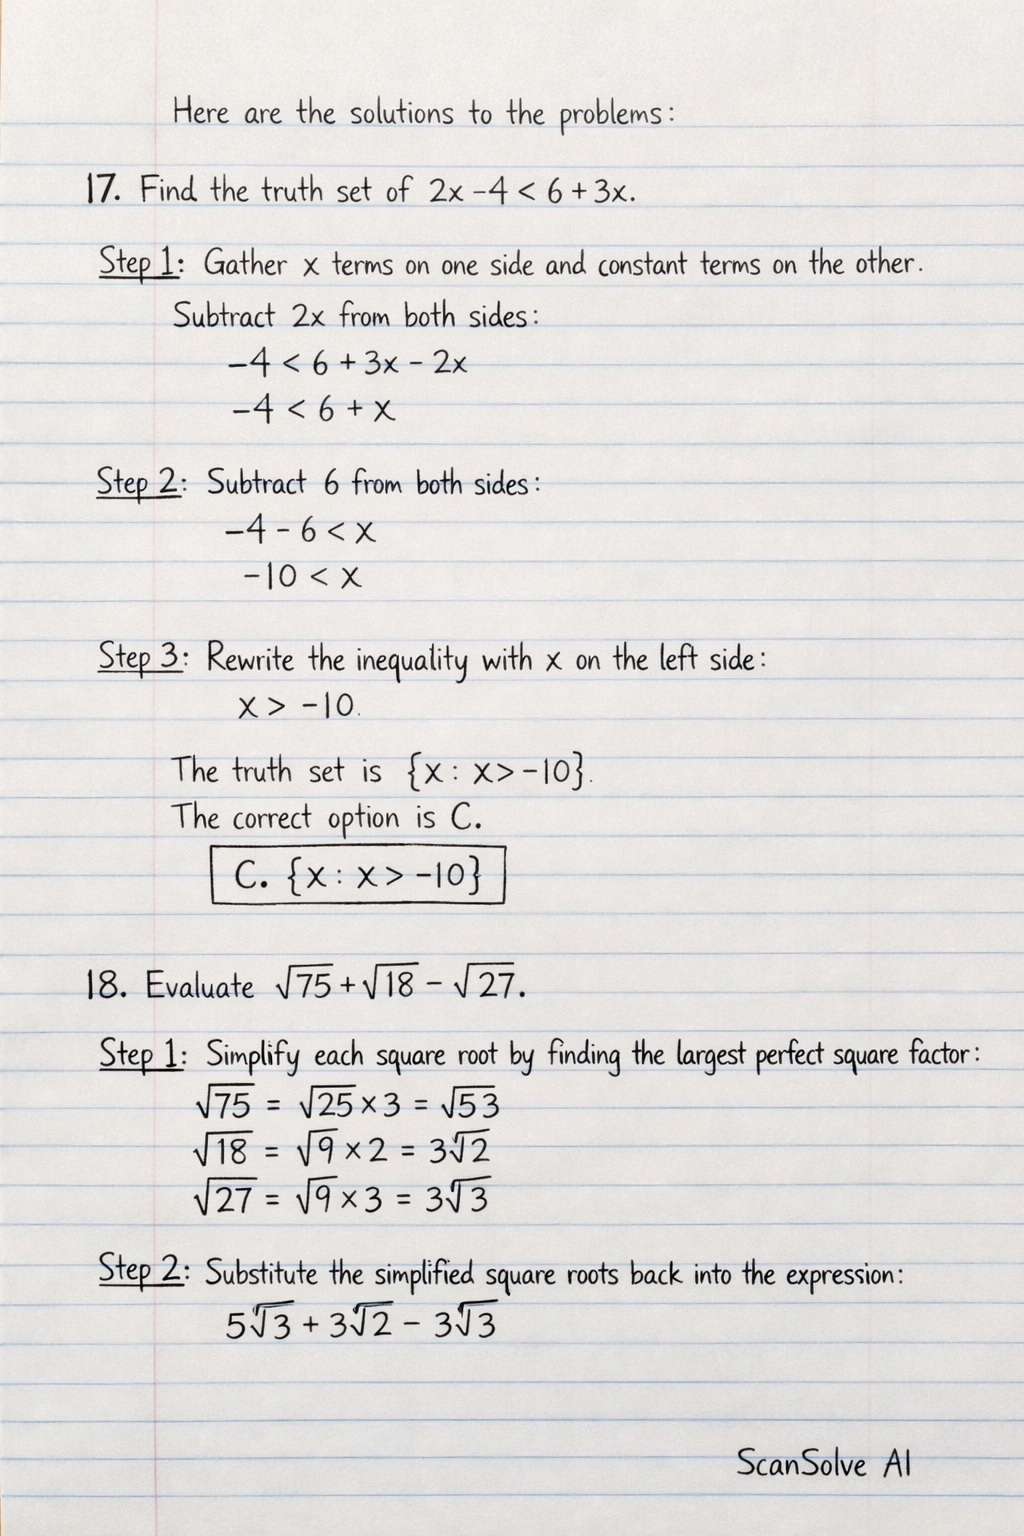 Here are the solutions to the problems:
17. Find the truth set of 2x - 4 < 6 + 3x.
Step 1: Gather x terms on one side and constant terms on the other.
Subtract 2x from both sides:
-4 < 6 + 3x - 2x
-4 < 6 + x
Step 2: Subtract 6 from both sides:
-4 - 6 < x
-10 < x
Step 3: Rewrite the inequality with x on the left side:
x > -10.
The truth set is {x : x > -10}.
The correct option is C.
C. {x : x > -10}
18. Evaluate √75 + √18 - √27.
Step 1: Simplify each square root by finding the largest perfect square factor:
√75 = √25 × 3 = √53
√18 = √9 × 2 = 3√2
√27 = √9 × 3 = 3√3
Step 2: Substitute the simplified square roots back into the expression:
5√3 + 3√2 - 3√3
ScanSolve AI